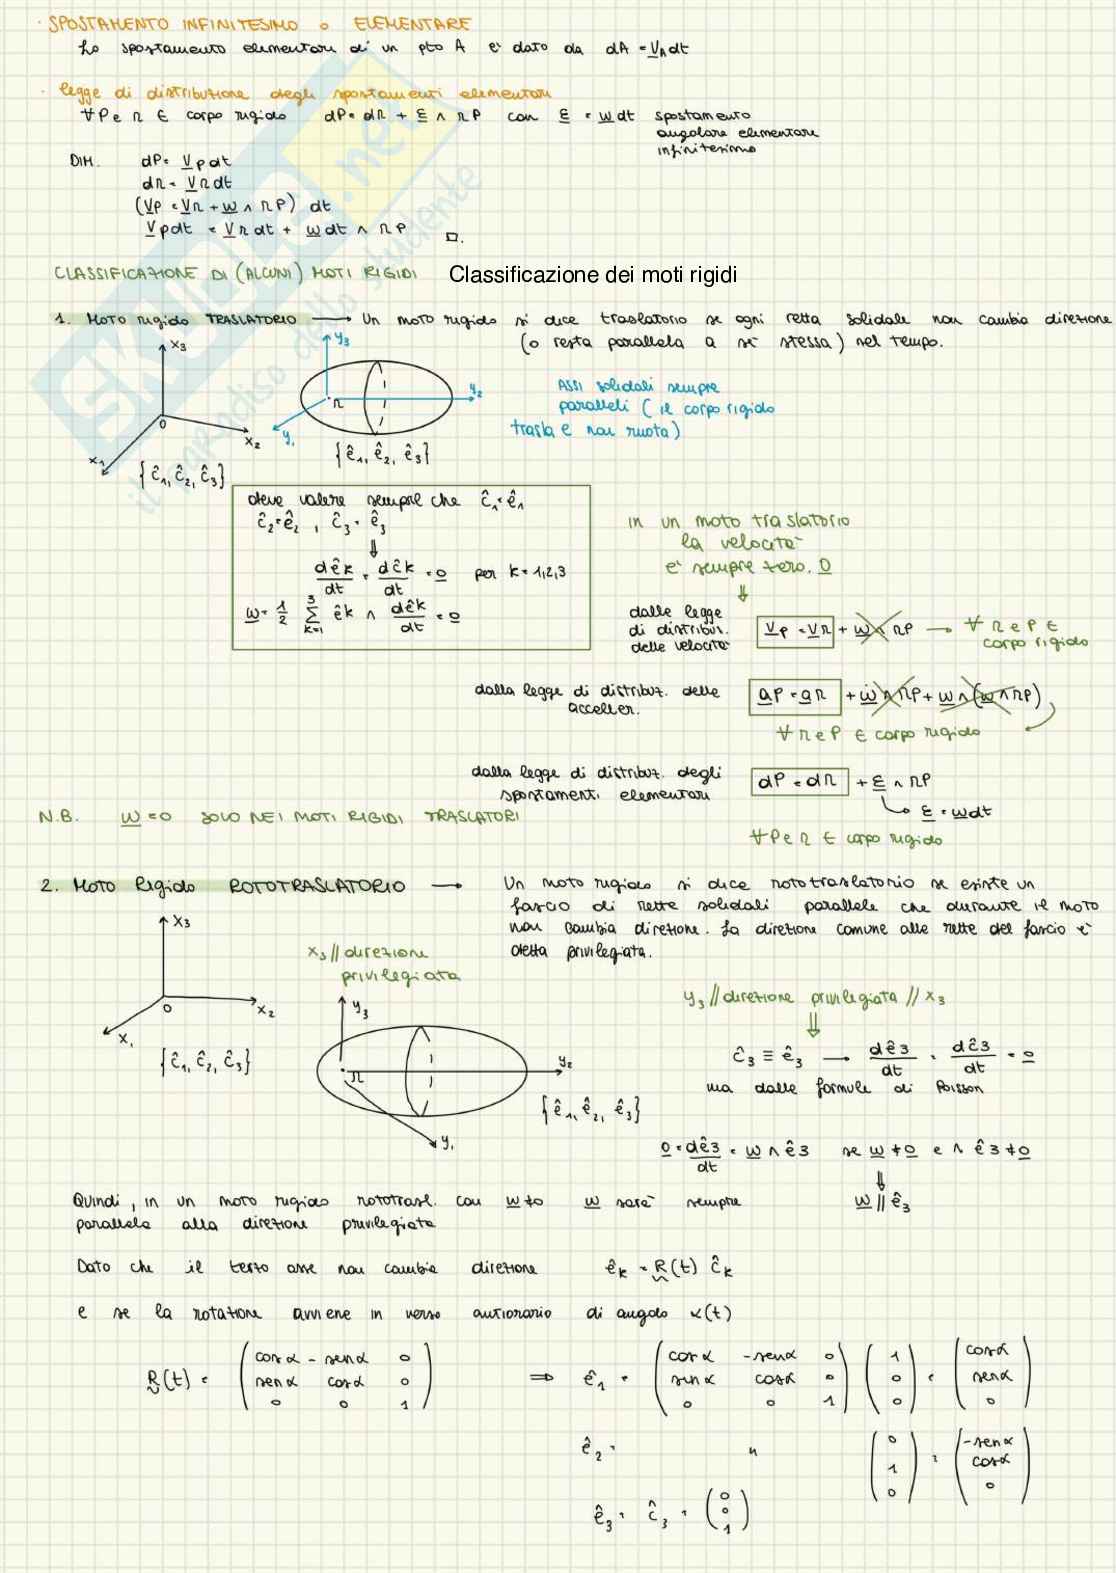 · SPOSTAMENTO INFINITESIMO o ELEMENTARE
Lo spostamento elementare di un pto A è dato da dA = V_A dt
· legge di distribuzione degli spostamenti elementari
∀ P e Ω ∈ corpo rigido dP = dΩ + ε ∧ ΩP con ε = ω dt spostamento
angolare elementare
infinitesimo
DIM. dP = V_P dt
dΩ = V_Ω dt
(V_P = V_Ω + ω ∧ ΩP) dt
V_P dt = V_Ω dt + ω dt ∧ ΩP □.
CLASSIFICAZIONE DI (ALCUNI) MOTI RIGIDI Classificazione dei moti rigidi
1. MOTO rigido TRASLATORIO → Un moto rigido si dice traslatorio se ogni retta solidale non cambia direzione
(o resta parallela a sé stessa) nel tempo.
x3
y3
Ω
y2
y1
O
x2
x1
{ĉ1, ĉ2, ĉ3}
{ê1, ê2, ê3}
Assi solidali sempre
paralleli (il corpo rigido
trasla e non ruota)
deve valere sempre che ĉ1 = ê1
ĉ2 = ê2 , ĉ3 = ê3
⇓
dêk/dt = dĉk/dt = 0 per k = 1,2,3
ω = 1/2 Σ k=1 3 êk ∧ dêk/dt = 0
in un moto traslatorio
la velocità
è sempre zero. 0
⇓
dalle legge
di distribuz.
delle velocità
V_P = V_Ω + ω ∧ ΩP → ∀ Ω e P ∈
corpo rigido
dalla legge di distribuz. delle
acceler.
a_P = a_Ω + ω̇ ∧ ΩP + ω ∧ (ω ∧ ΩP)
∀ Ω e P ∈ corpo rigido
dalla legge di distribuz. degli
spostamenti elementari
dP = dΩ + ε ∧ ΩP
↳ ε = ω dt
∀ P e Ω ∈ corpo rigido
N.B. ω = 0 SOLO NEI MOTI RIGIDI TRASLATORI
2. Moto Rigido ROTOTRASLATORIO → Un moto rigido si dice rototraslatorio se esiste un
fascio di rette solidali parallele che durante il moto
non cambia direzione. La direzione comune alle rette del fascio è
detta privilegiata.
x3
O
x2
x1
{ĉ1, ĉ2, ĉ3}
x3 // direzione
privilegiata
y3
Ω
y2
y1
{ê1, ê2, ê3}
y3 // direzione privilegiata // x3
⇓
ĉ3 ≡ ê3 → dê3/dt = dĉ3/dt = 0
ma dalle formule di Poisson
0 = dê3/dt = ω ∧ ê3 se ω ≠ 0 e ∧ ê3 ≠ 0
⇓
ω // ê3
Quindi, in un moto rigido rototrasl. con ω ≠ 0 ω sarà sempre
parallela alla direzione privilegiata
Dato che il terzo asse non cambia direzione êk = R(t) ĉk
e se la rotazione avviene in verso antiorario di angolo α(t)
R(t) = (cosα -senα 0
senα cosα 0
0 0 1)
⇒ ê1 = (cosα -senα 0
sinα cosα 0
0 0 1) (1 0 0) = (cosα senα 0)
ê2 = " (0 1 0) = (-senα cosα 0)
ê3 = ĉ3 = (0 0 1)
SKUOLA.net
il paradiso dello studente